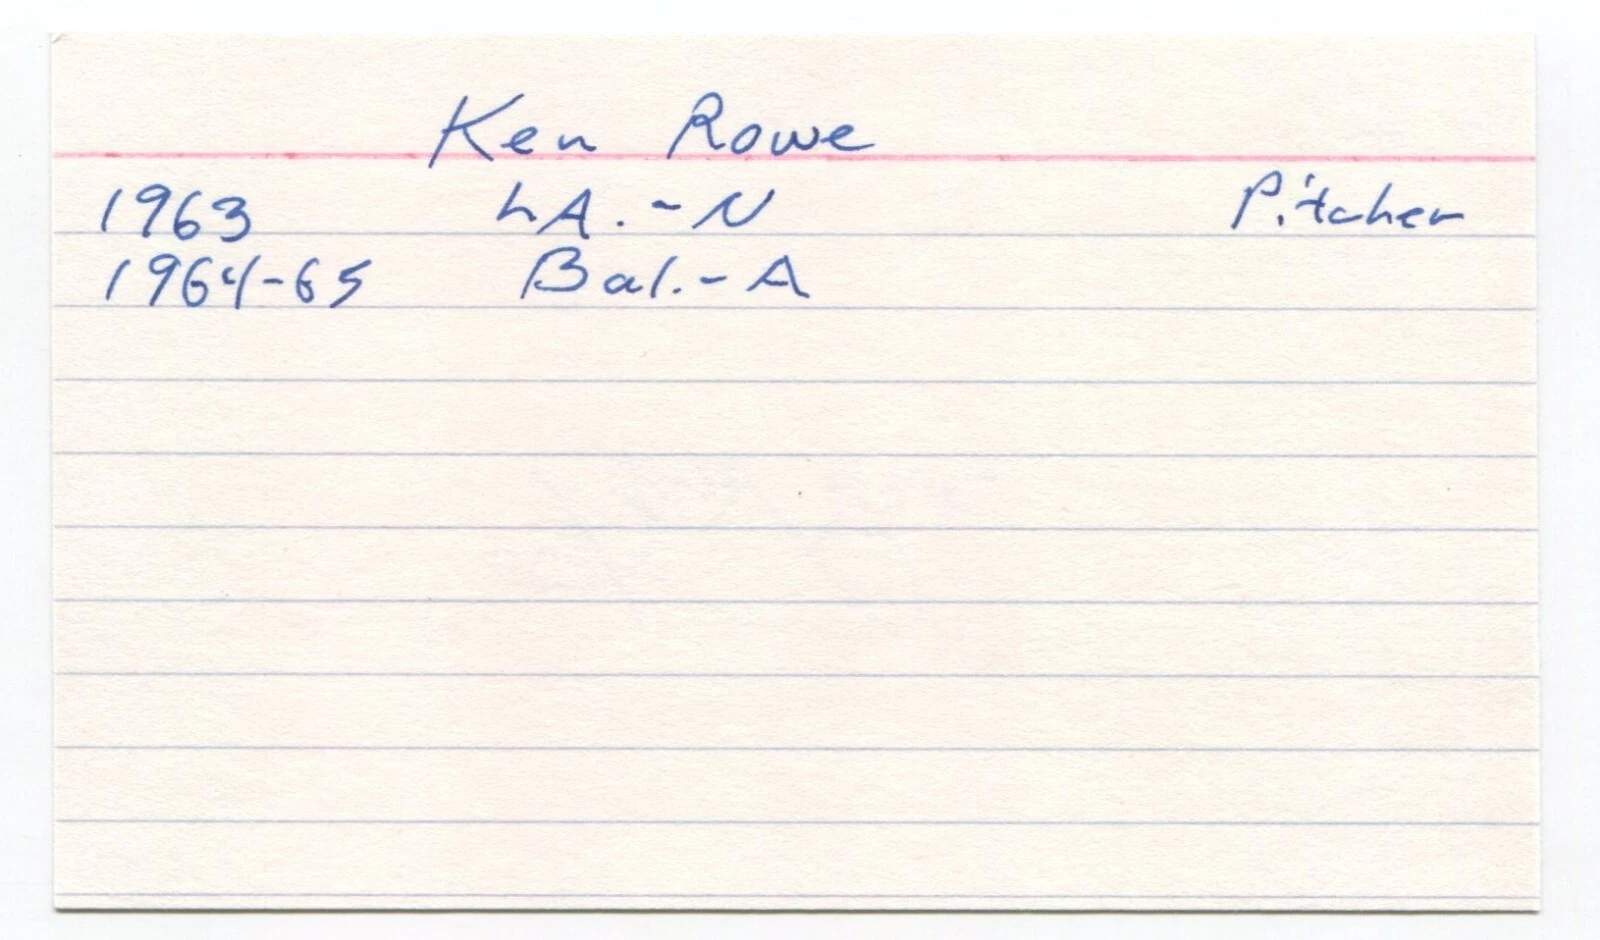 Ken Rowe
1963 LA.-N Pitcher
1964-65 Bal.-A